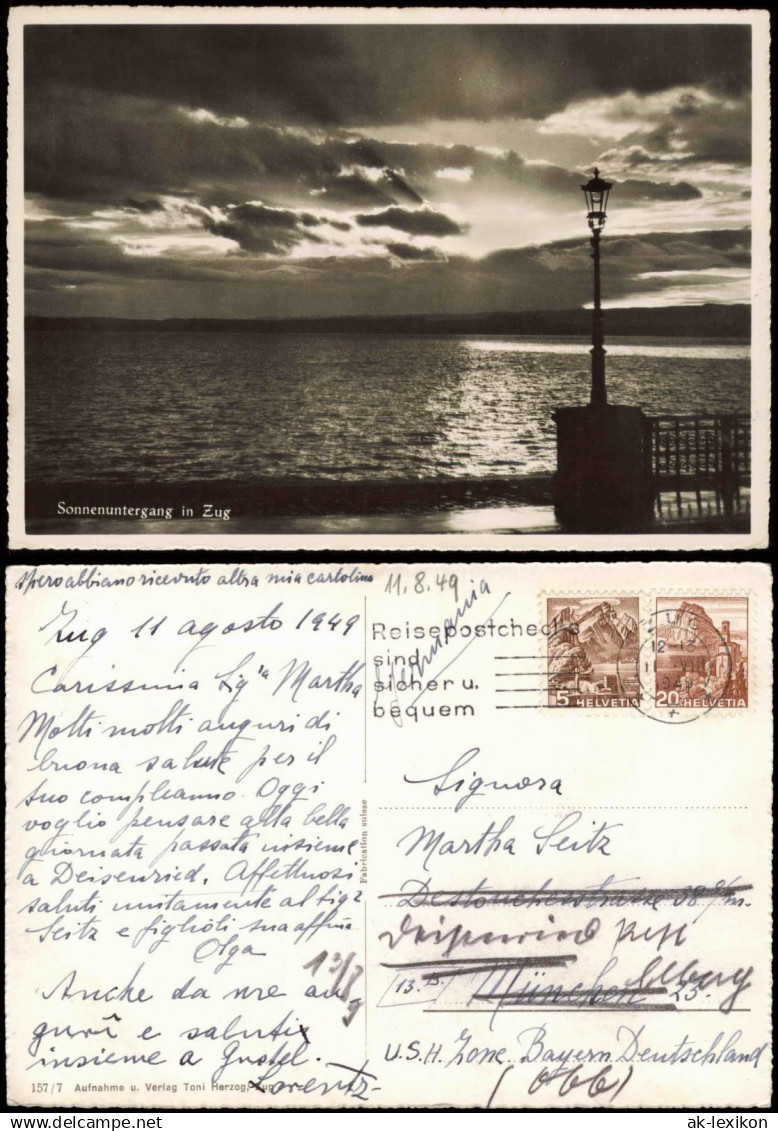 Sonnenuntergang in Zug
Spero abbiano ricevuto altra mia cartolina
Zug 11 agosto 1949
Carissima Sigra Martha
Molti molti auguri di
buona salute per il
suo compleanno. Oggi
voglio pensare alla bella
giornata passata insieme
a Deisenried. Affettuosi
saluti unitamente al Sigr
Seitz e figlioli sua affma
Olga
Anche da me au-
guri e saluti
insieme a Gustel.
Lorentz-
157/7 Aufnahme u. Verlag Toni Herzog, Zug
Fabrication suisse
11.8.49
Germania
Reisepostchecks
sind
sicher u.
bequem
ZUG
5 HELVETIA
20 HELVETIA
Signora
Martha Seitz
Destouchesstrasse 38
Deisenried Post
(13.B. München 23.
U.S.H. Zone. Bayern. Deutschland
ak-lexikon